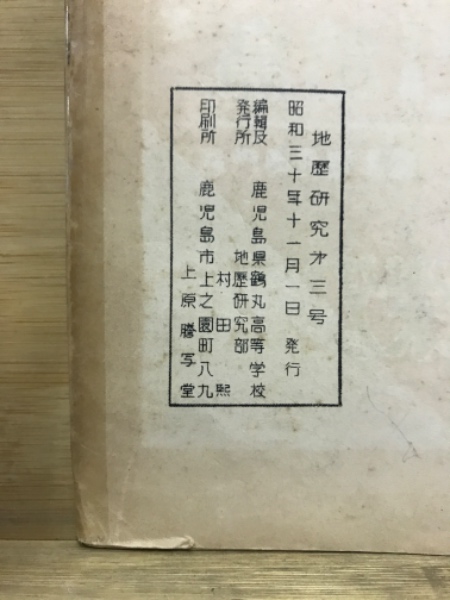 地歴研究才三号
昭和三十年十一月一日 発行
編輯及 鹿児島県鶴丸高等学校
発行所 地歴研究部
村田熙
印刷所 鹿児島市上之園町八九
上原謄写堂